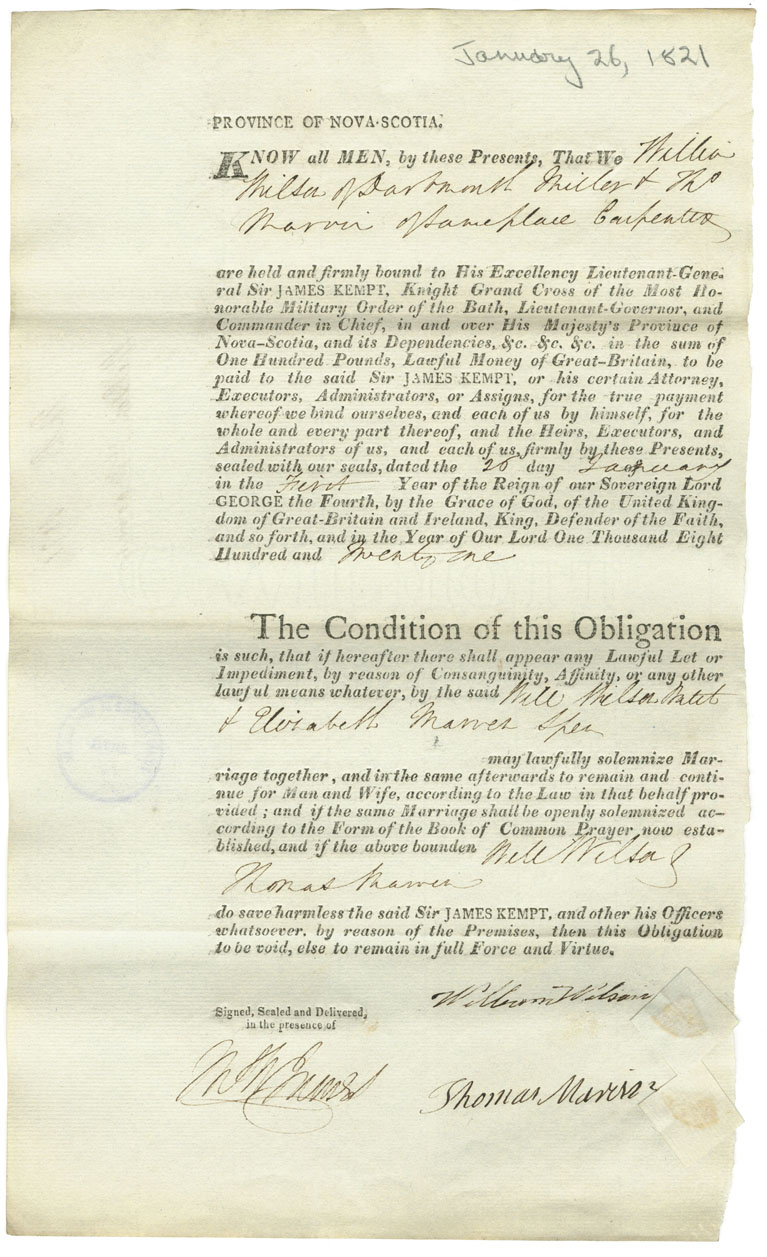 January 26, 1821
PROVINCE OF NOVA-SCOTIA.
KNOW all MEN, by these Presents, That We Willm
Wilson of Dartmouth Miller & Thos
Marvin of same place Carpenter
are held and firmly bound to His Excellency Lieutenant-Gene-
ral Sir JAMES KEMPT, Knight Grand Cross of the Most Ho-
norable Military Order of the Bath, Lieutenant-Governor, and
Commander in Chief, in and over His Majesty's Province of
Nova-Scotia, and its Dependencies, &c. &c. &c. in the sum of
One Hundred Pounds, Lawful Money of Great-Britain, to be
paid to the said Sir JAMES KEMPT, or his certain Attorney,
Executors, Administrators, or Assigns, for the true payment
whereof we bind ourselves, and each of us by himself, for the
whole and every part thereof, and the Heirs, Executors, and
Administrators of us, and each of us, firmly by these Presents,
sealed with our seals, dated the 26 day January
in the First Year of the Reign of our Sovereign Lord
GEORGE the Fourth, by the Grace of God, of the United King-
dom of Great-Britain and Ireland, King, Defender of the Faith,
and so forth, and in the Year of Our Lord One Thousand Eight
Hundred and Twenty one
The Condition of this Obligation
is such, that if hereafter there shall appear any Lawful Let or
Impediment, by reason of Consanguinity, Affinity, or any other
lawful means whatever, by the said Will Wilson
& Elizabeth Marven
may lawfully solemnize Mar-
riage together, and in the same afterwards to remain and conti-
nue for Man and Wife, according to the Law in that behalf pro-
vided; and if the same Marriage shall be openly solemnized ac-
cording to the Form of the Book of Common Prayer now esta-
blished, and if the above bounden Will Wilson &
Thomas Marven
do save harmless the said Sir JAMES KEMPT, and other his Officers
whatsoever, by reason of the Premises, then this Obligation
to be void, else to remain in full Force and Virtue.
William Wilson
Signed, Sealed and Delivered,
in the presence of
Thomas Marvin